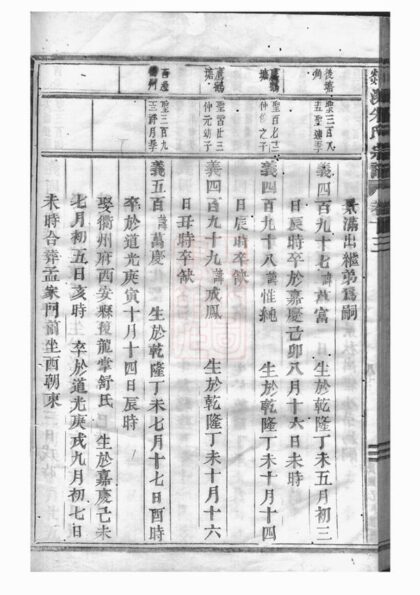 宗譜
卷十三
景滿出繼弟爲嗣
後塘 聖三百八
角 五聖連季
義四百九十七諱萬富 生於乾隆丁未五月初三
日辰時卒於嘉慶己卯八月十六日未時
聖百七十三
塘 仲仁之子
義四百九十八諱惟純 生於乾隆丁未十月十四
日辰時卒缺
聖百廿三
塘 仲元幼子
義四百九十九諱成鳳 生於乾隆丁未十月十六
日丑時卒缺
聖三百九
衢州 王諍月季
義五百諱萬慶 生於乾隆丁未七月十七日酉時
卒於道光庚寅十月十四日辰時
娶衢州府西安縣後龍掌舒氏 生於嘉慶己未
七月初五日亥時 卒於道光庚戌九月初七日
未時合葬孟家門前坐酉朝東